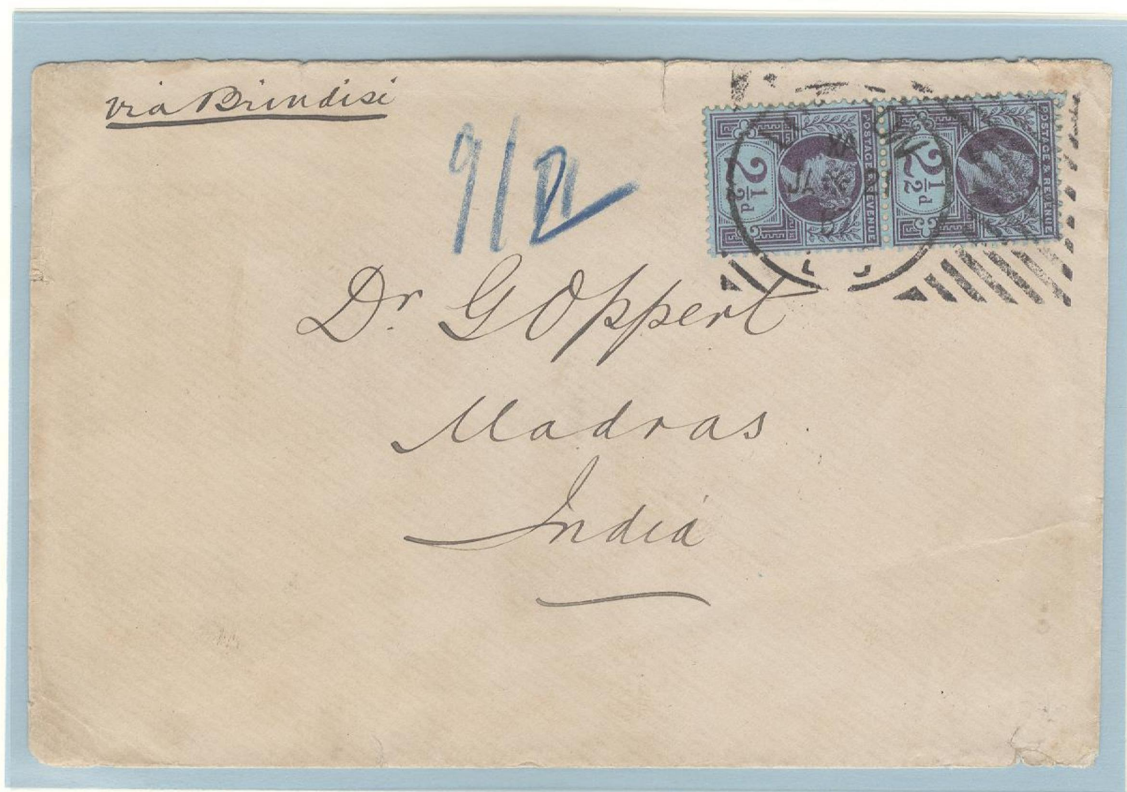 via Brindisi
9/
2½d
POSTAGE & REVENUE
2½d
POSTAGE & REVENUE
Dr. G Oppert
Madras
India